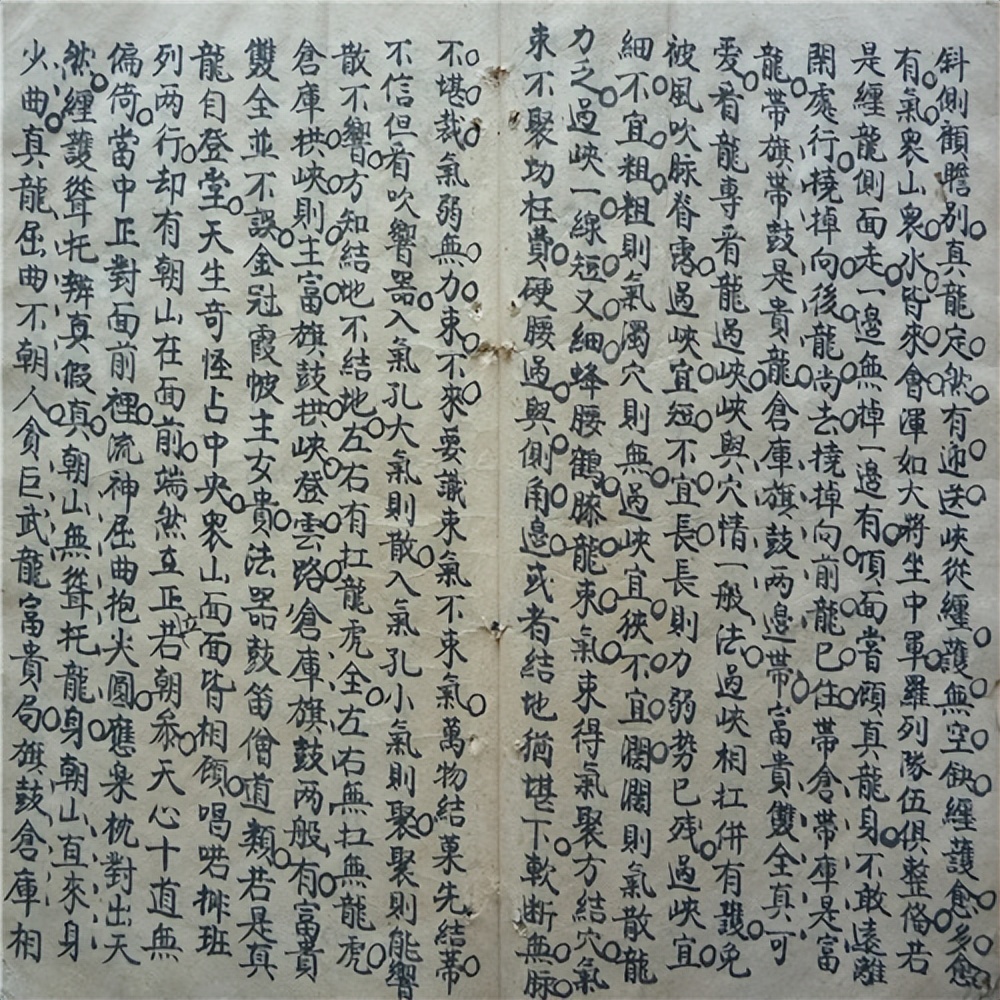 斜側顧瞻別真龍定然有迎送峽從纏護無空缺纏護愈多愈
有氣衆山衆水皆來會渾如大將坐中軍羅列隊伍俱整俻若
是纏龍側面走一邊無掉一邊有頂面當顧真龍身不敢遠離
閑處行橈掉向後龍尚去橈掉向前龍已住帶倉帶庫是富
龍帶旗帶鼓是貴龍倉庫旗鼓两邊帶富貴雙全真可
愛看龍專看龍過峽峽與穴情一般法過峽相扛併有護免
被風吹脉脊露過峽宜短不宜長長則力弱勢已残過峽宜
細不宜粗粗則氣濁穴則無過峽宜狹不宜濶濶則氣散龍
力乏過峽一線短又細蜂腰鶴膝龍束氣束得氣聚方結穴氣
束不聚功枉費硬腰過與側角邊或者結地猶堪下軟断無脉
不堪裁氣弱無力束不來要識束氣不束氣萬物結菓先結蒂
不信但看吹響器入氣孔大氣則散入氣孔小氣則聚聚則能響
散不響方知結地不結地左右有扛龍虎全左右無扛無龍虎
倉庫拱峽則主富旗鼓拱峽登雲路倉庫旗鼓两般有富貴
雙全並不誤金冠霞帔主女貴法器鼓笛僧道類若是真
龍自登堂天生奇怪占中央衆山面面皆相顧唱喏排班
列两行却有朝山在面前端然立正若朝叅天心十道無
偏倚當中正對面前裡流神屈曲抱尖圓應樂枕對出天
然纏護聳托辨真假真朝山無聳托龍身朝山直來身
少曲真龍屈曲不朝人貪巨武龍富貴局旗鼓倉庫相